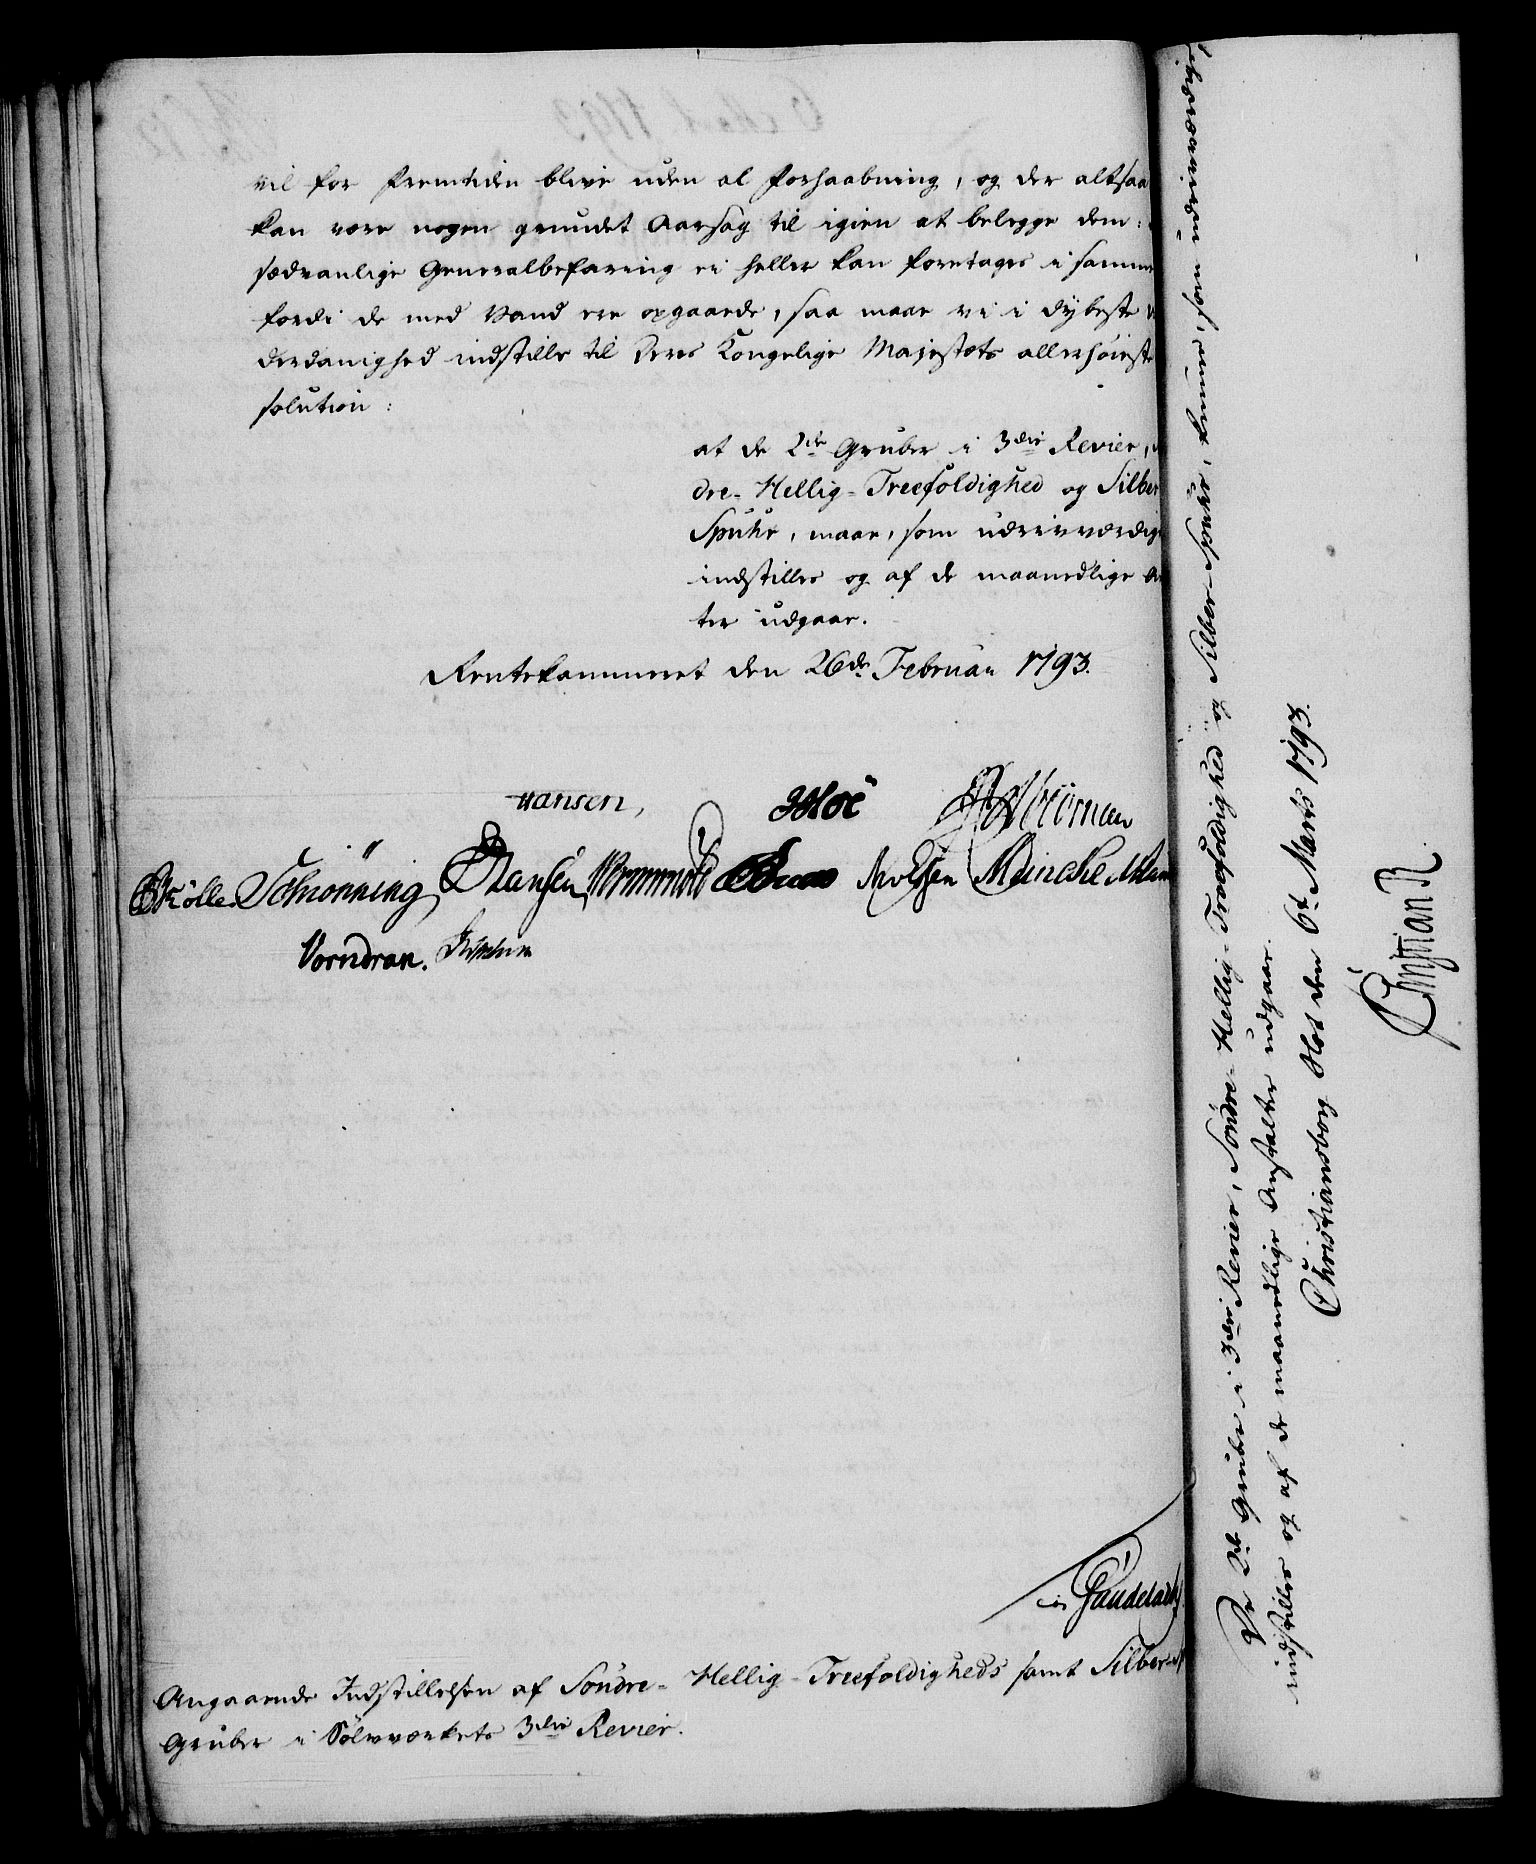 vil for Fremtiden blive uden al Forhaabning, og der altsaa
kan være nogen grundet Aarsag til igien at belegge dem:
sædvanlige Generalbefaring ei heller kan foretages i samme
fordi de med Vand ere opgaaede, saa maae vi i dybeste
derdanighed indstille til Deres Kongelige Majestæts allerhøieste
solution:
at de 2de Gruber i 3die Revier,
dre-Hellig-Treefoldighed og Silber
Spuhr, maae, som udrivværdige
indstilles og af de maanedlige
ter udgaae.
Rentekammeret den 26de Februar 1793.
Hansen,
Schiönning Hansen Wormskiold Meincke
Vorndran.
Angaaende Indstillelsen af Söndre-Hellig-Treefoldigheds samt Silber
Gruber i Sölvværkets 3die Revier.
De 2de Grube i 3die Revier, Söndre-Hellig-Treefoldighed og Silber-Spuhr, kunne, som udrivværdige,
indstilles og af de maanedlige Anstalter udgaae.
Christiansborg Slot den 6t Marts 1793.
Christian R.